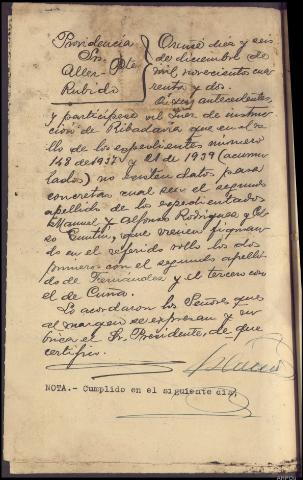 Providencia
Sres.
Aller- Pte
Rubido
Orense diez y seis
de diciembre de
mil novecientos cua
renta y dos.
antecedentes,
y participese al Juez de instruc
ción de Ribadavia que en el ro
llo de los expedientes número
148 de 1937 y 21 de 1939 (acumu
lados) no existen datos para
concretar cual sea el segundo
apellido de los expedientados
Manuel y Alfonso Rodriguez y
Cuntin, que vienen figuran
do en el referido rollo los dos
primeros con el segundo apelli
do de Fernandez y el tercero con
el de Cuña.
Lo acordaron los Señores que
al margen se expresan y ru
brica el Sr. Presidente, de que
certifico.
NOTA.- Cumplido en el siguiente día.